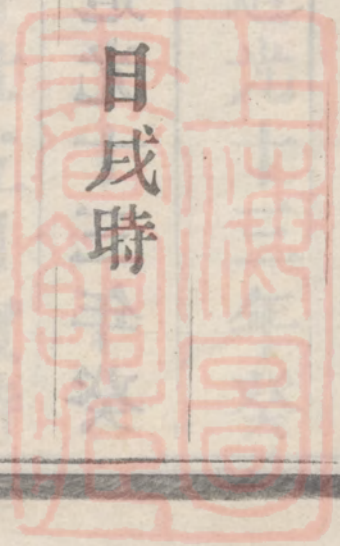 日戌時
上海圖
書館藏